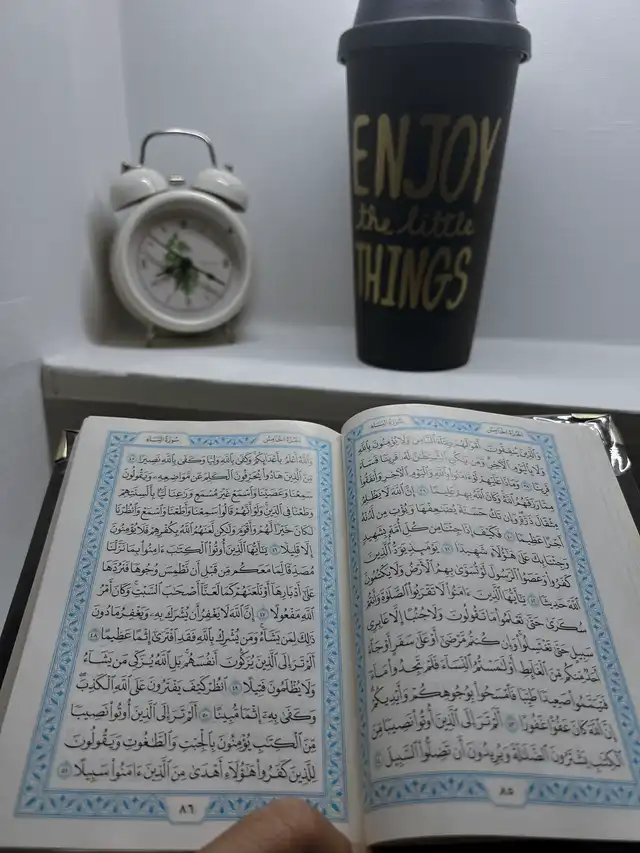 ENJOY
the little
THINGS
الجزء الخامس سورة النساء
وَٱلَّذِينَ يُنفِقُونَ أَمْوَٰلَهُمْ رِئَآءَ ٱلنَّاسِ وَلَا يُؤْمِنُونَ بِٱللَّهِ
وَلَا بِٱلْيَوْمِ ٱلْءَاخِرِ وَمَن يَكُنِ ٱلشَّيْطَٰنُ لَهُۥ قَرِينًا فَسَآءَ
قَرِينًا ٣٨ وَمَاذَا عَلَيْهِمْ لَوْ ءَامَنُوا۟ بِٱللَّهِ وَٱلْيَوْمِ ٱلْءَاخِرِ وَأَنفَقُوا۟
مِمَّا رَزَقَهُمُ ٱللَّهُ وَكَانَ ٱللَّهُ بِهِمْ عَلِيمًا ٣٩ إِنَّ ٱللَّهَ لَا يَظْلِمُ
مِثْقَالَ ذَرَّةٍ وَإِن تَكُ حَسَنَةً يُضَٰعِفْهَا وَيُؤْتِ مِن لَّدُنْهُ
أَجْرًا عَظِيمًا ٤٠ فَكَيْفَ إِذَا جِئْنَا مِن كُلِّ أُمَّةٍۭ بِشَهِيدٍ
وَجِئْنَا بِكَ عَلَىٰ هَٰٓؤُلَآءِ شَهِيدًا ٤١ يَوْمَئِذٍ يَوَدُّ ٱلَّذِينَ
كَفَرُوا۟ وَعَصَوُا۟ ٱلرَّسُولَ لَوْ تُسَوَّىٰ بِهِمُ ٱلْأَرْضُ وَلَا يَكْتُمُونَ
ٱللَّهَ حَدِيثًا ٤٢ يَٰٓأَيُّهَا ٱلَّذِينَ ءَامَنُوا۟ لَا تَقْرَبُوا۟ ٱلصَّلَوٰةَ وَأَنتُمْ
سُكَٰرَىٰ حَتَّىٰ تَعْلَمُوا۟ مَا تَقُولُونَ وَلَا جُنُبًا إِلَّا عَابِرِى
سَبِيلٍ حَتَّىٰ تَغْتَسِلُوا۟ وَإِن كُنتُم مَّرْضَىٰٓ أَوْ عَلَىٰ سَفَرٍ أَوْ جَآءَ
أَحَدٌ مِّنكُم مِّنَ ٱلْغَآئِطِ أَوْ لَٰمَسْتُمُ ٱلنِّسَآءَ فَلَمْ تَجِدُوا۟ مَآءً
فَتَيَمَّمُوا۟ صَعِيدًا طَيِّبًا فَٱمْسَحُوا۟ بِوُجُوهِكُمْ وَأَيْدِيكُمْ
إِنَّ ٱللَّهَ كَانَ عَفُوًّا غَفُورًا ٤٣ أَلَمْ تَرَ إِلَى ٱلَّذِينَ أُوتُوا۟ نَصِيبًا مِّنَ
ٱلْكِتَٰبِ يَشْتَرُونَ ٱلضَّلَٰلَةَ وَيُرِيدُونَ أَن تَضِلُّوا۟ ٱلسَّبِيلَ ٤٤
٨٥
الجزء الخامس سورة النساء
وَٱللَّهُ أَعْلَمُ بِأَعْدَآئِكُمْ وَكَفَىٰ بِٱللَّهِ وَلِيًّا وَكَفَىٰ بِٱللَّهِ نَصِيرًا ٤٥
مِّنَ ٱلَّذِينَ هَادُوا۟ يُحَرِّفُونَ ٱلْكَلِمَ عَن مَّوَاضِعِهِۦ وَيَقُولُونَ
سَمِعْنَا وَعَصَيْنَا وَٱسْمَعْ غَيْرَ مُسْمَعٍ وَرَٰعِنَا لَيًّۢا بِأَلْسِنَتِهِمْ
وَطَعْنًا فِى ٱلدِّينِ وَلَوْ أَنَّهُمْ قَالُوا۟ سَمِعْنَا وَأَطَعْنَا وَٱسْمَعْ وَٱنظُرْنَا
لَكَانَ خَيْرًا لَّهُمْ وَأَقْوَمَ وَلَٰكِن لَّعَنَهُمُ ٱللَّهُ بِكُفْرِهِمْ فَلَا يُؤْمِنُونَ
إِلَّا قَلِيلًا ٤٦ يَٰٓأَيُّهَا ٱلَّذِينَ أُوتُوا۟ ٱلْكِتَٰبَ ءَامِنُوا۟ بِمَا نَزَّلْنَا
مُصَدِّقًا لِّمَا مَعَكُم مِّن قَبْلِ أَن نَّطْمِسَ وُجُوهًا فَنَرُدَّهَا
عَلَىٰٓ أَدْبَارِهَآ أَوْ نَلْعَنَهُمْ كَمَا لَعَنَّآ أَصْحَٰبَ ٱلسَّبْتِ وَكَانَ أَمْرُ
ٱللَّهِ مَفْعُولًا ٤٧ إِنَّ ٱللَّهَ لَا يَغْفِرُ أَن يُشْرَكَ بِهِۦ وَيَغْفِرُ مَا دُونَ
ذَٰلِكَ لِمَن يَشَآءُ وَمَن يُشْرِكْ بِٱللَّهِ فَقَدِ ٱفْتَرَىٰٓ إِثْمًا عَظِيمًا ٤٨
أَلَمْ تَرَ إِلَى ٱلَّذِينَ يُزَكُّونَ أَنفُسَهُم بَلِ ٱللَّهُ يُزَكِّى مَن يَشَآءُ
وَلَا يُظْلَمُونَ فَتِيلًا ٤٩ ٱنظُرْ كَيْفَ يَفْتَرُونَ عَلَى ٱللَّهِ ٱلْكَذِبَ
وَكَفَىٰ بِهِۦٓ إِثْمًا مُّبِينًا ٥٠ أَلَمْ تَرَ إِلَى ٱلَّذِينَ أُوتُوا۟ نَصِيبًا
مِّنَ ٱلْكِتَٰبِ يُؤْمِنُونَ بِٱلْجِبْتِ وَٱلطَّٰغُوتِ وَيَقُولُونَ
لِلَّذِينَ كَفَرُوا۟ هَٰٓؤُلَآءِ أَهْدَىٰ مِنَ ٱلَّذِينَ ءَامَنُوا۟ سَبِيلًا ٥١
٨٦